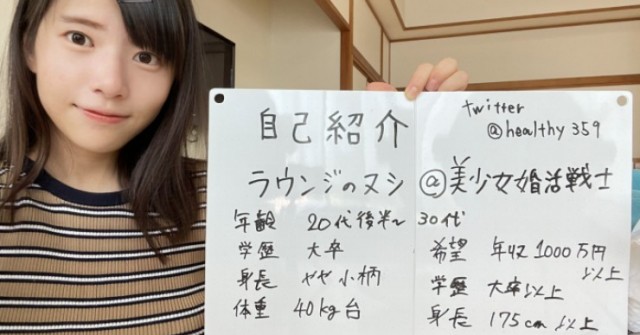 自己紹介
twitter
@healthy359
ラウンジのヌシ@美少女婚活戦士
年齢 20代後半~30代
学歴 大卒
身長 やや小柄
体重 40kg台
希望 年収1000万円
以上
学歴 大卒以上
身長 175cm以上